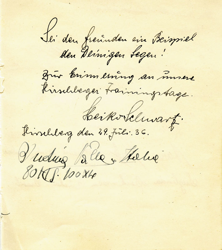 Sei den Freunden ein Beispiel
den Deinigen Segen!
Zur Erinnerung an unsere
Hirschberger Trainingstage.
Heiko Schwartz
Hirschberg den 29. Juli. 36.
Italia
80 100 x 4